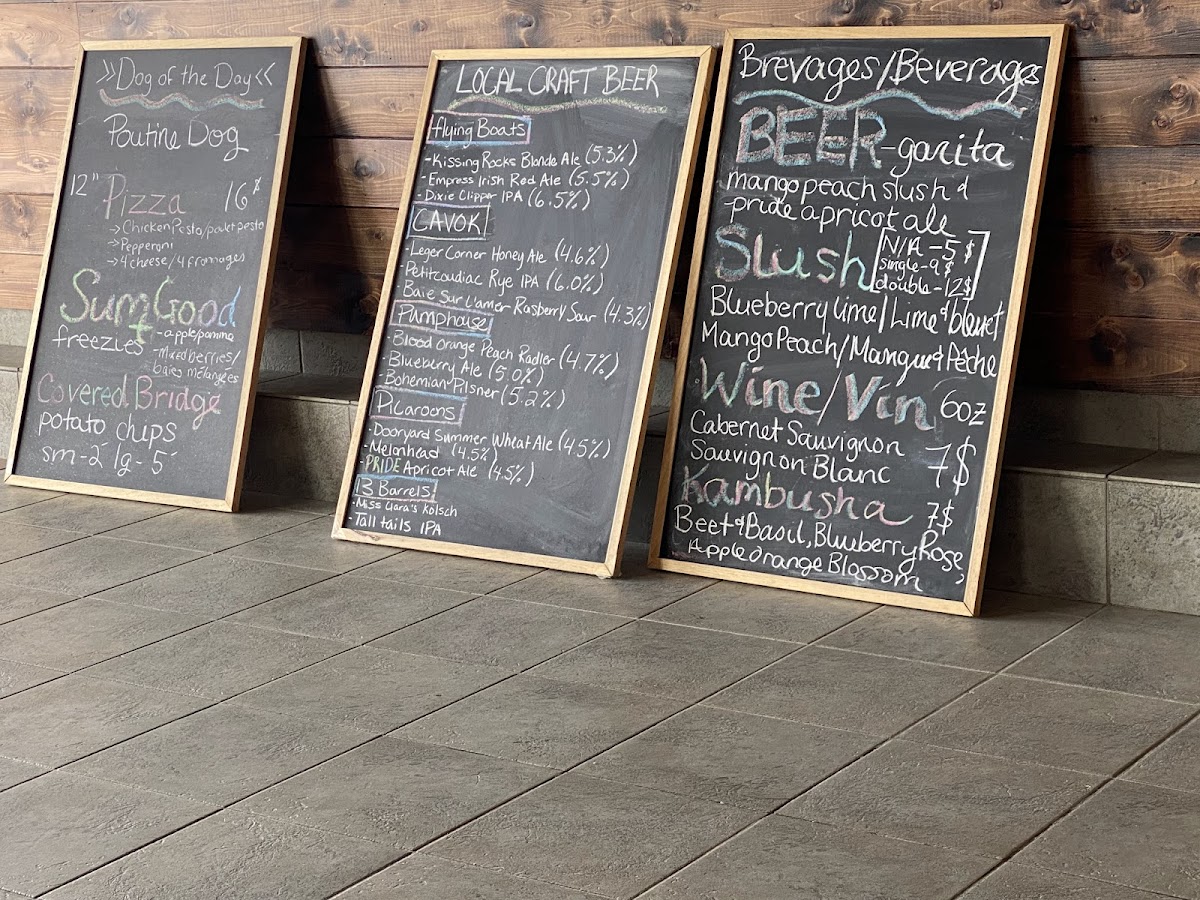 >>Dog of the Day<<
Poutine Dog
12" Pizza 16$
→ Chicken Pesto/poulet pesto
→ Pepperoni
→ 4 cheese/4 fromages
Sum Good
freezies
- apple/pomme
- mixed berries/
baies mélangées
Covered Bridge
potato chips
sm-2 lg-5
LOCAL CRAFT BEER
flying Boats
- Kissing Rocks Blonde Ale (5.3%)
- Empress Irish Red Ale (5.5%)
- Dixie Clipper IPA (6.5%)
CAVOK
- Leger Corner Honey Ale (4.6%)
- Petitcodiac Rye IPA (6.0%)
- Baie Sur L'amer Rasberry Sour (4.3%)
Pumphouse
- Blood Orange Peach Radler (4.7%)
- Blueberry Ale (5.0%)
- Bohemian Pilsner (5.2%)
Picaroons
- Dooryard Summer Wheat Ale (4.5%)
- Melonhead (4.5%)
- PRIDE Apricot Ale (4.5%)
13 Barrels
- Miss Clara's Kolsch
- Tall tails IPA
Brevages/Beverages
BEER-garita
mango peach slush &
pride apricot ale
Slush
N/A -5$
single-9$
double-12$
Blueberry Lime/Lime & bleuet
Mango Peach/Mangue & Pêche
Wine/Vin 6oz
Cabernet Sauvignon
Sauvignon Blanc 7$
Kambusha 7$
Beet & Basil, Blueberry Rose,
Apple Orange Blossom